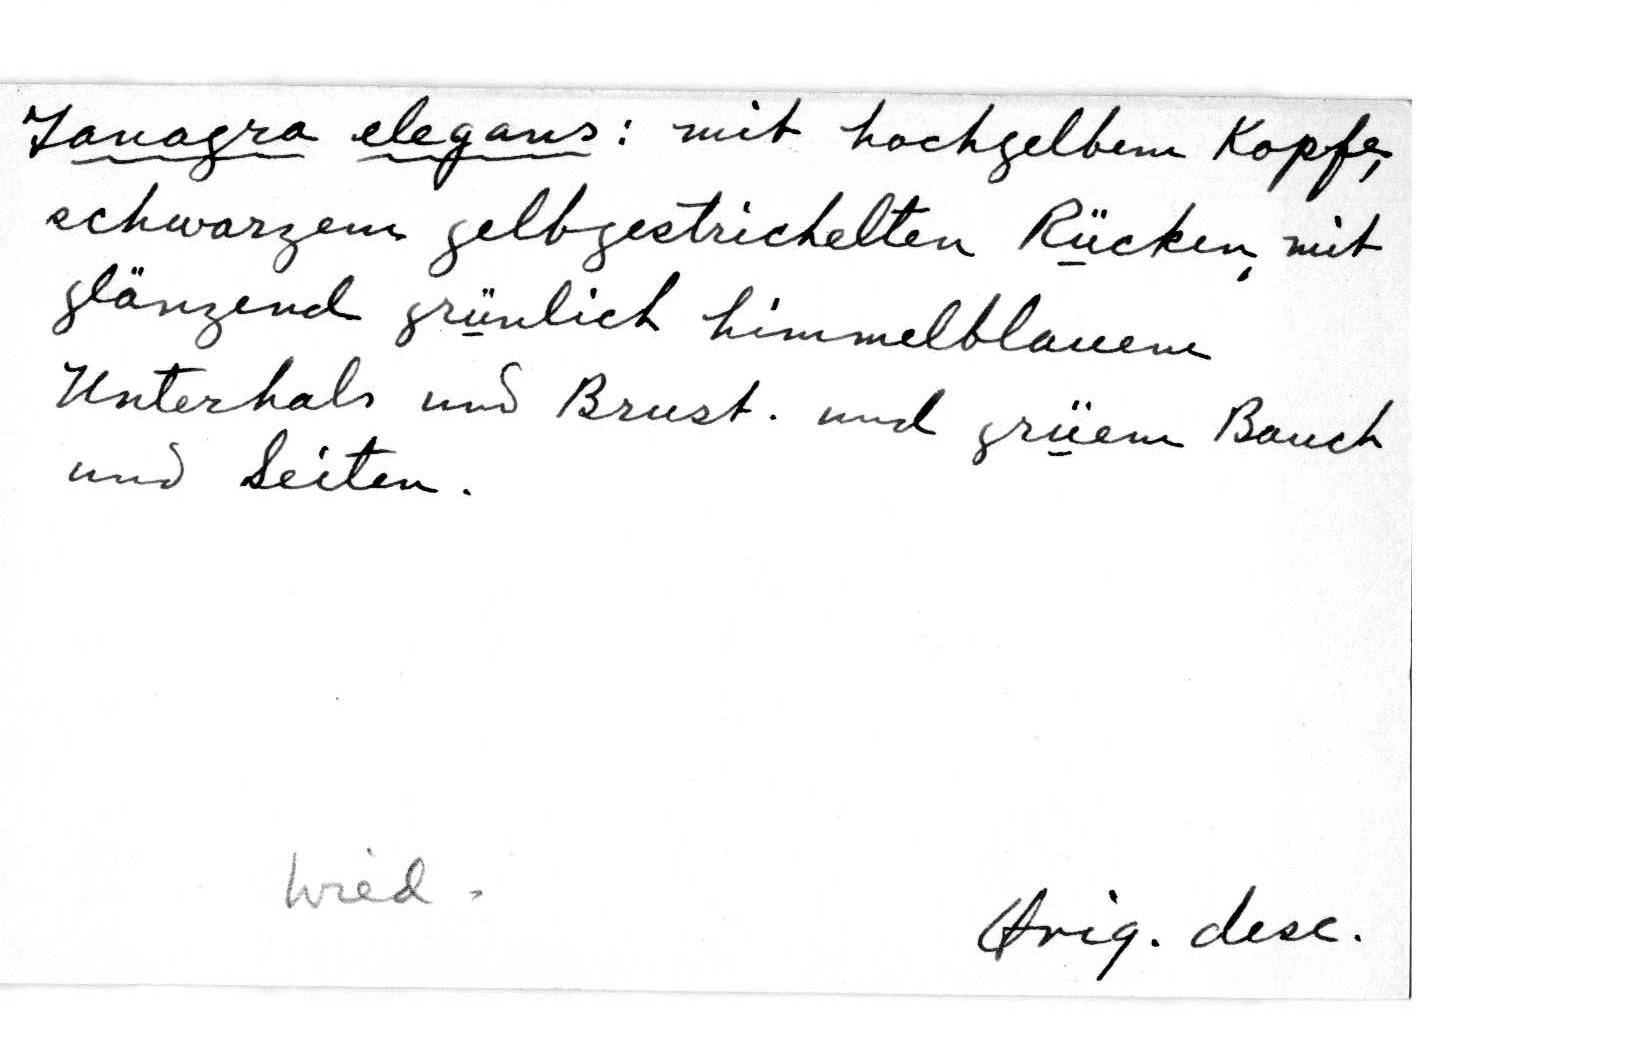 Tanagra elegans: mit hochgelbem Kopfe,
schwarzem gelbgestrichelten Rücken, mit
glänzend grünlich himmelblauem
Unterhals und Brust. und grüem Bauch
und Seiten.
Wied.
Orig. desc.